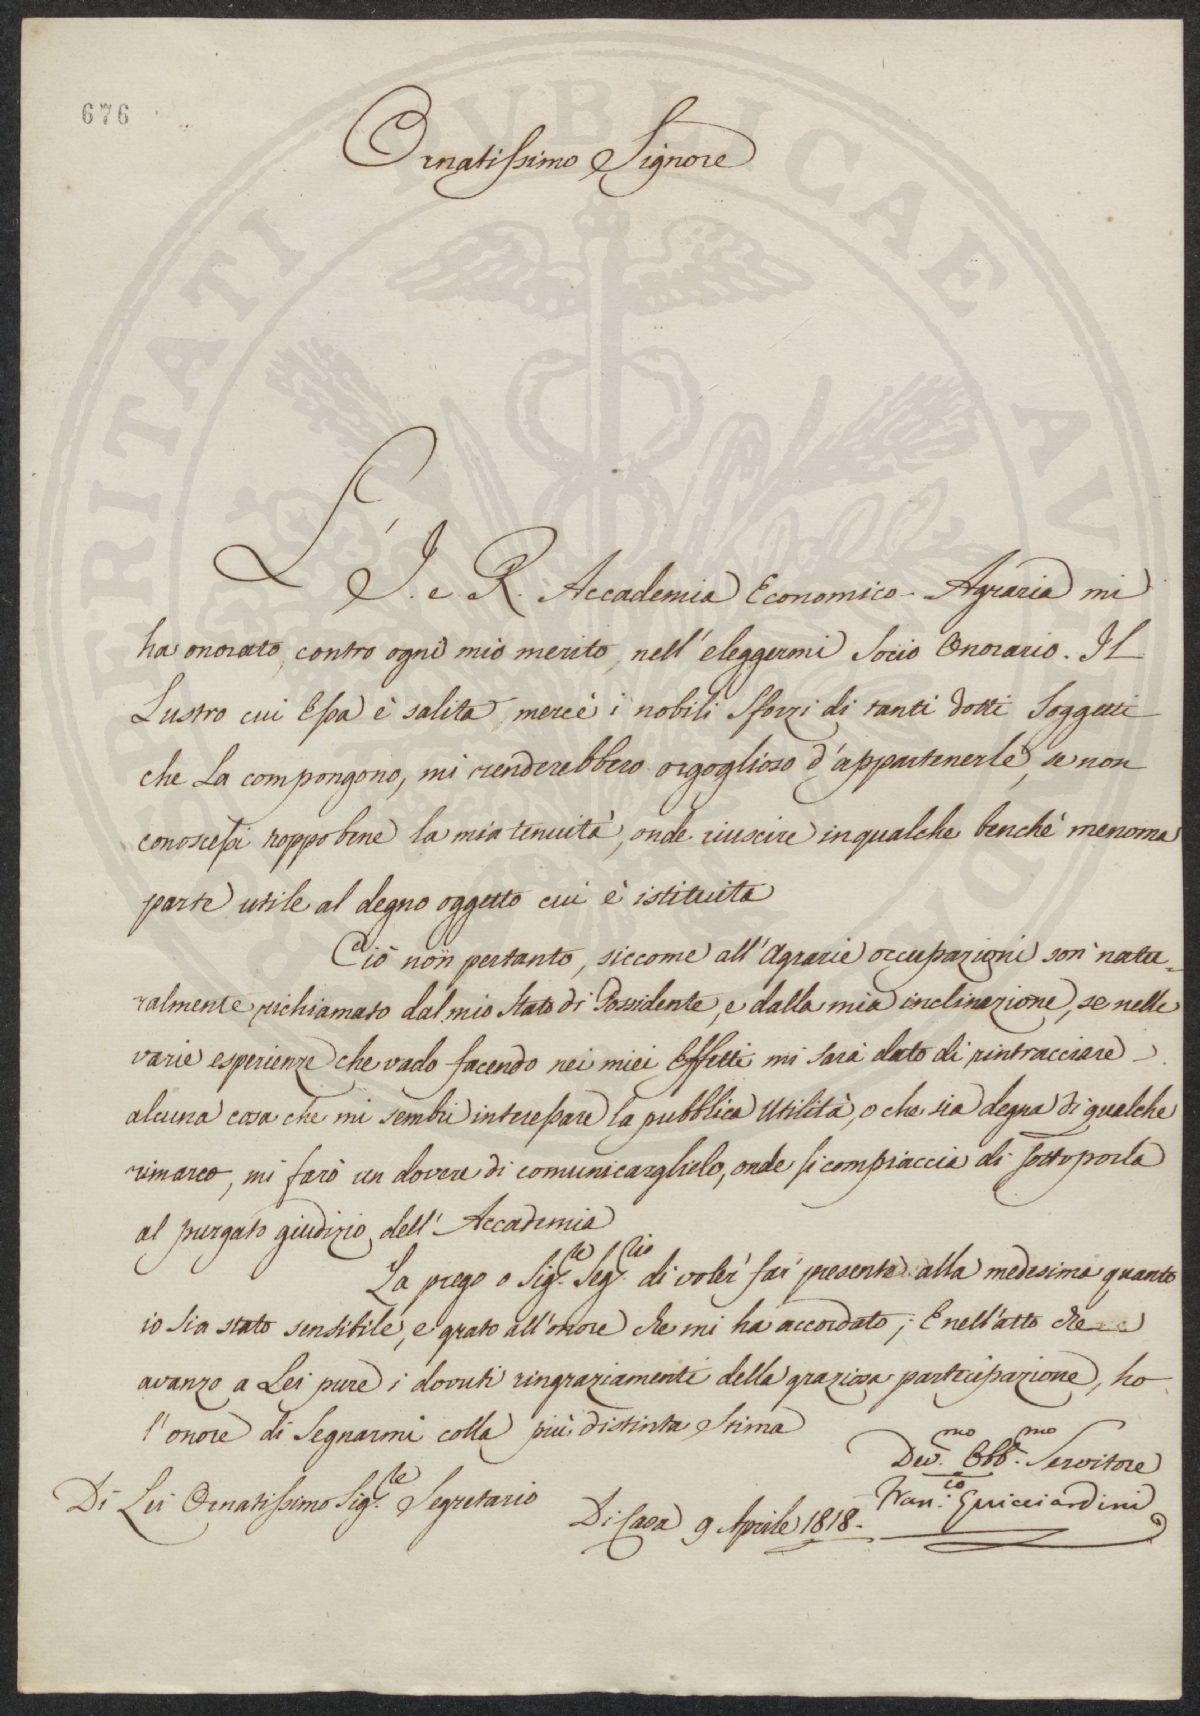 676
Ornatissimo Signore
L' I. e R. Accademia Economico-Agraria mi
ha onorato, contro ogni mio merito, nell' eleggermi Socio Onorario. Il
Lustro cui Essa è salita, mercè i nobili sforzi di tanti dotti Soggetti
che La compongono, mi renderebbero orgoglioso d'appartenerle, se non
conoscessi troppo bene la mia tenuità, onde riuscire in qualche benchè menoma
parte utile al degno oggetto cui è istituita
Ciò non pertanto, siccome all' Agrarie occupazioni son natu-
ralmente richiamato dal mio Stato di Possidente, e dalla mia inclinazione, se nelle
varie esperienze che vado facendo nei miei Effetti mi sarà dato di rintracciare
alcuna cosa che mi sembri interessare la pubblica Utilità, o che sia degna di qualche
rimarco, mi farò un dovere di comunicarglielo, onde si compiaccia di sottoporla
al purgato giudizio dell' Accademia
La prego o Sig.re Seg.rio di voler far presente alla medesima quanto
io sia stato sensibile, e grato all' onore che mi ha accordato; E nell'atto che
avanzo a Lei pure i dovuti ringraziamenti della graziosa partecipazione, ho
l' onore di Segnarmi colla più distinta Stima
Dev.mo Obb.mo Servitore
Di Lei Ornatissimo Sig.re Segretario
Fran.co Guicciardini
Di Casa 9 Aprile 1818.